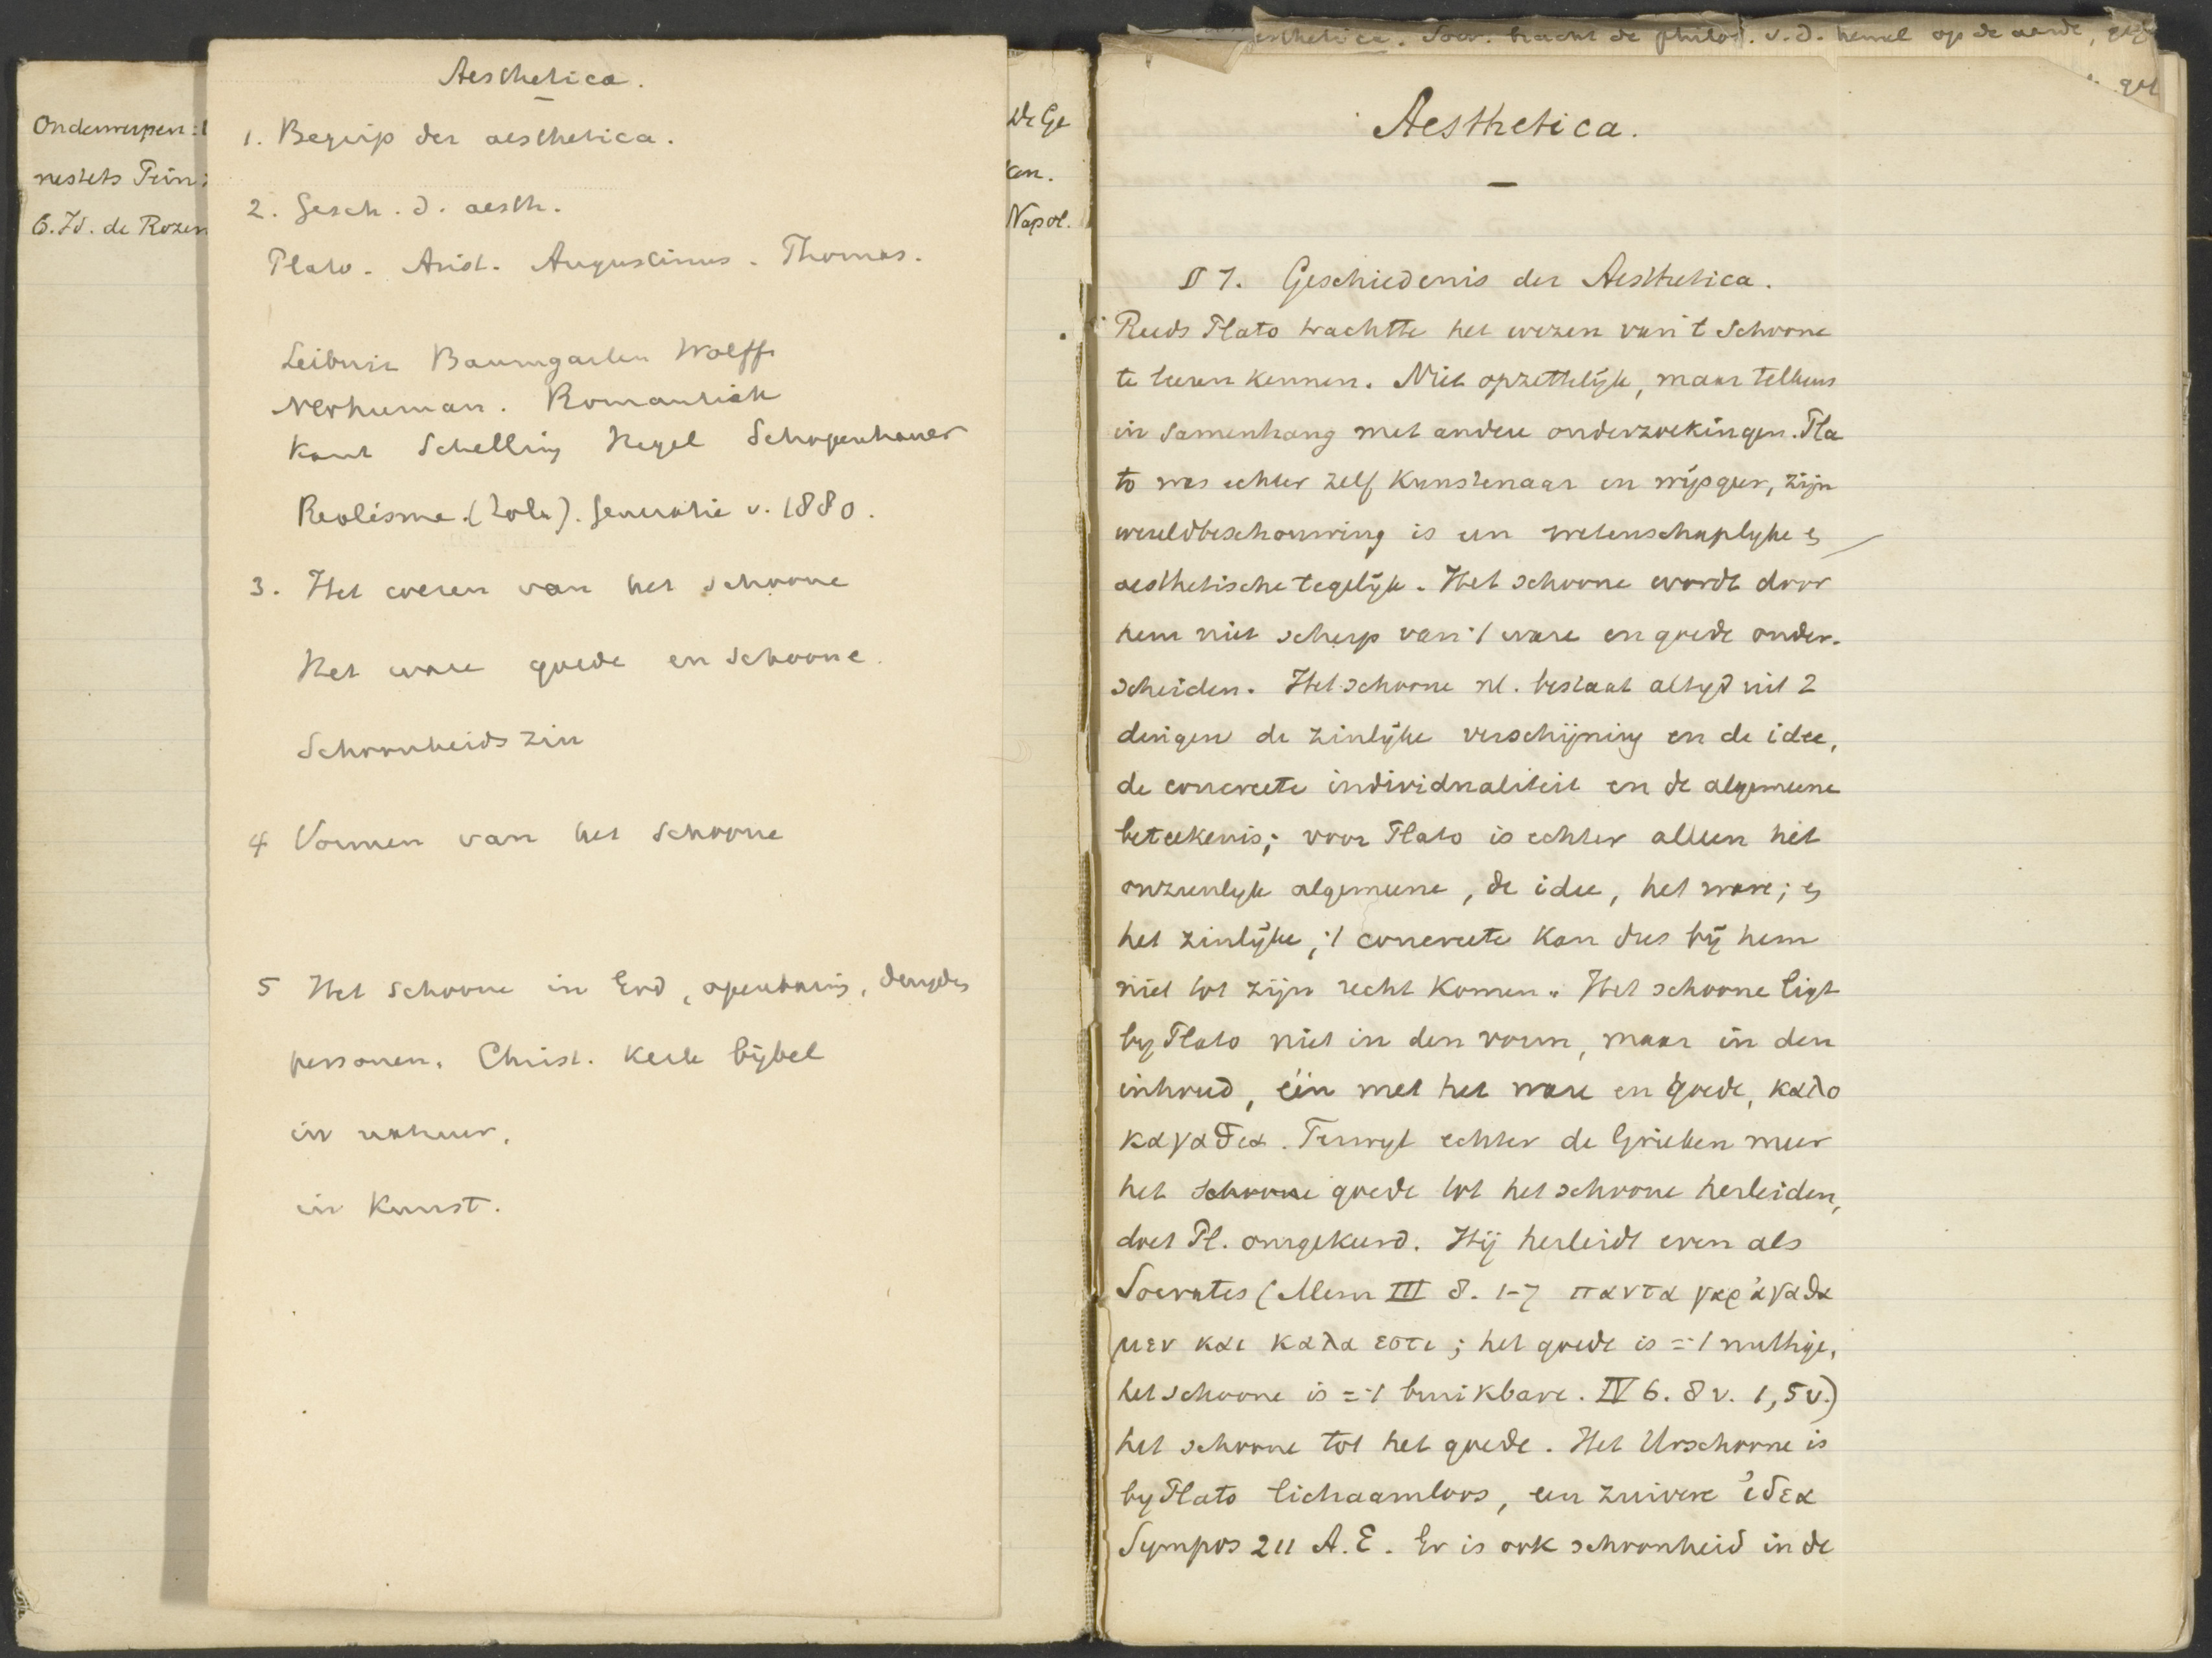 Onderwerpen:
nestets Prin
6. Id. de Rozen
Aesthetica.
1. Begrip der aesthetica.
2. Gesch. d. aesth.
Plato. Arist. Augustinus. Thomas.
Leibniz Baumgarten Wolff
Neohuman. Romantiek
Kant Schelling Hegel Schopenhauer
Realisme. (Zola). Generatie v. 1880.
3. Het wezen van het schoone
Het ware goede en schoone.
Schoonheidszin
4 Vormen van het schoone
5 Het schoone in God, openbaring, deugden
personen. Christ. Kerk bijbel
in natuur,
in Kunst.
De Ge
ken.
Napol.
Aesthetica. Socr. bracht de philos. v. d. hemel op de aarde,
Aesthetica.
§ 1. Geschiedenis der Aesthetica.
Reeds Plato trachtte het wezen van 't schoone
te leeren kennen. Niet opzettelijk, maar telkens
in samenhang met andere onderzoekingen. Pla
to was echter zelf Kunstenaar en wijsgeer, zijn
wereldbeschouwing is een wetenschaplyke en
aesthetische tegelijk. Het schoone wordt door
hem niet scherp van 't ware en goede onder-
scheiden. Het schoone nl. bestaat altyd uit 2
dingen de zinlijke verschijning en de idee,
de concreete individualiteit en de algemeene
beteekenis; voor Plato is echter alleen het
onzienlyk algemeene, de idee, het ware; en
het zinlijke, 't concreete kan dus bij hem
niet tot zijn recht komen. Het schoone ligt
by Plato niet in den vorm, maar in den
inhoud, één met het ware en goede, καλο
καγαθια. Terwyl echter de Grieken meer
het schoone goede tot het schoone herleiden,
doet Pl. omgekeerd. Hij herleidt even als
Socrates (Mem III 8. 1-7 παντα γαρ ἀγαθα
μεν και καλα εστι; het goede is = 't nuttige,
het schoone is = 't bruikbare. IV 6. 8 v. 1,5 v.)
het schoone tot het goede. Het Urschoone is
by Plato lichaamloos, een zuivere ἰδεα
Sympos 211 A.E. Er is ook schoonheid in de